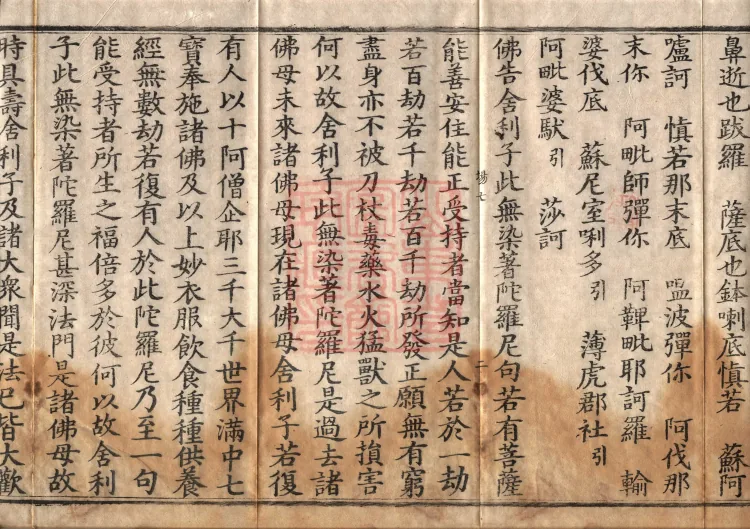 鼻逝也跋羅　薩底也鉢喇底慎若　蘇阿
嚧訶　慎若那末底　嗢波彈你　阿伐那
末你　阿毗師彈你　阿鞞毗耶訶羅　輸
婆伐底　蘇尼室唎多引　薄虎郡社引
阿毗婆馱引　莎訶
佛告舍利子此無染著陀羅尼句若有菩薩
能善安住能正受持者當知是人若於一劫
若百劫若千劫若百千劫所發正願無有窮
盡身亦不被刀杖毒藥水火猛獸之所損害
何以故舍利子此無染著陀羅尼是過去諸
佛母未來諸佛母現在諸佛母舍利子若復
有人以十阿僧企耶三千大千世界滿中七
寶奉施諸佛及以上妙衣服飲食種種供養
經無數劫若復有人於此陀羅尼乃至一句
能受持者所生之福倍多於彼何以故舍利
子此無染著陀羅尼甚深法門是諸佛母故
時具壽舍利子及諸大衆聞是法已皆大歡